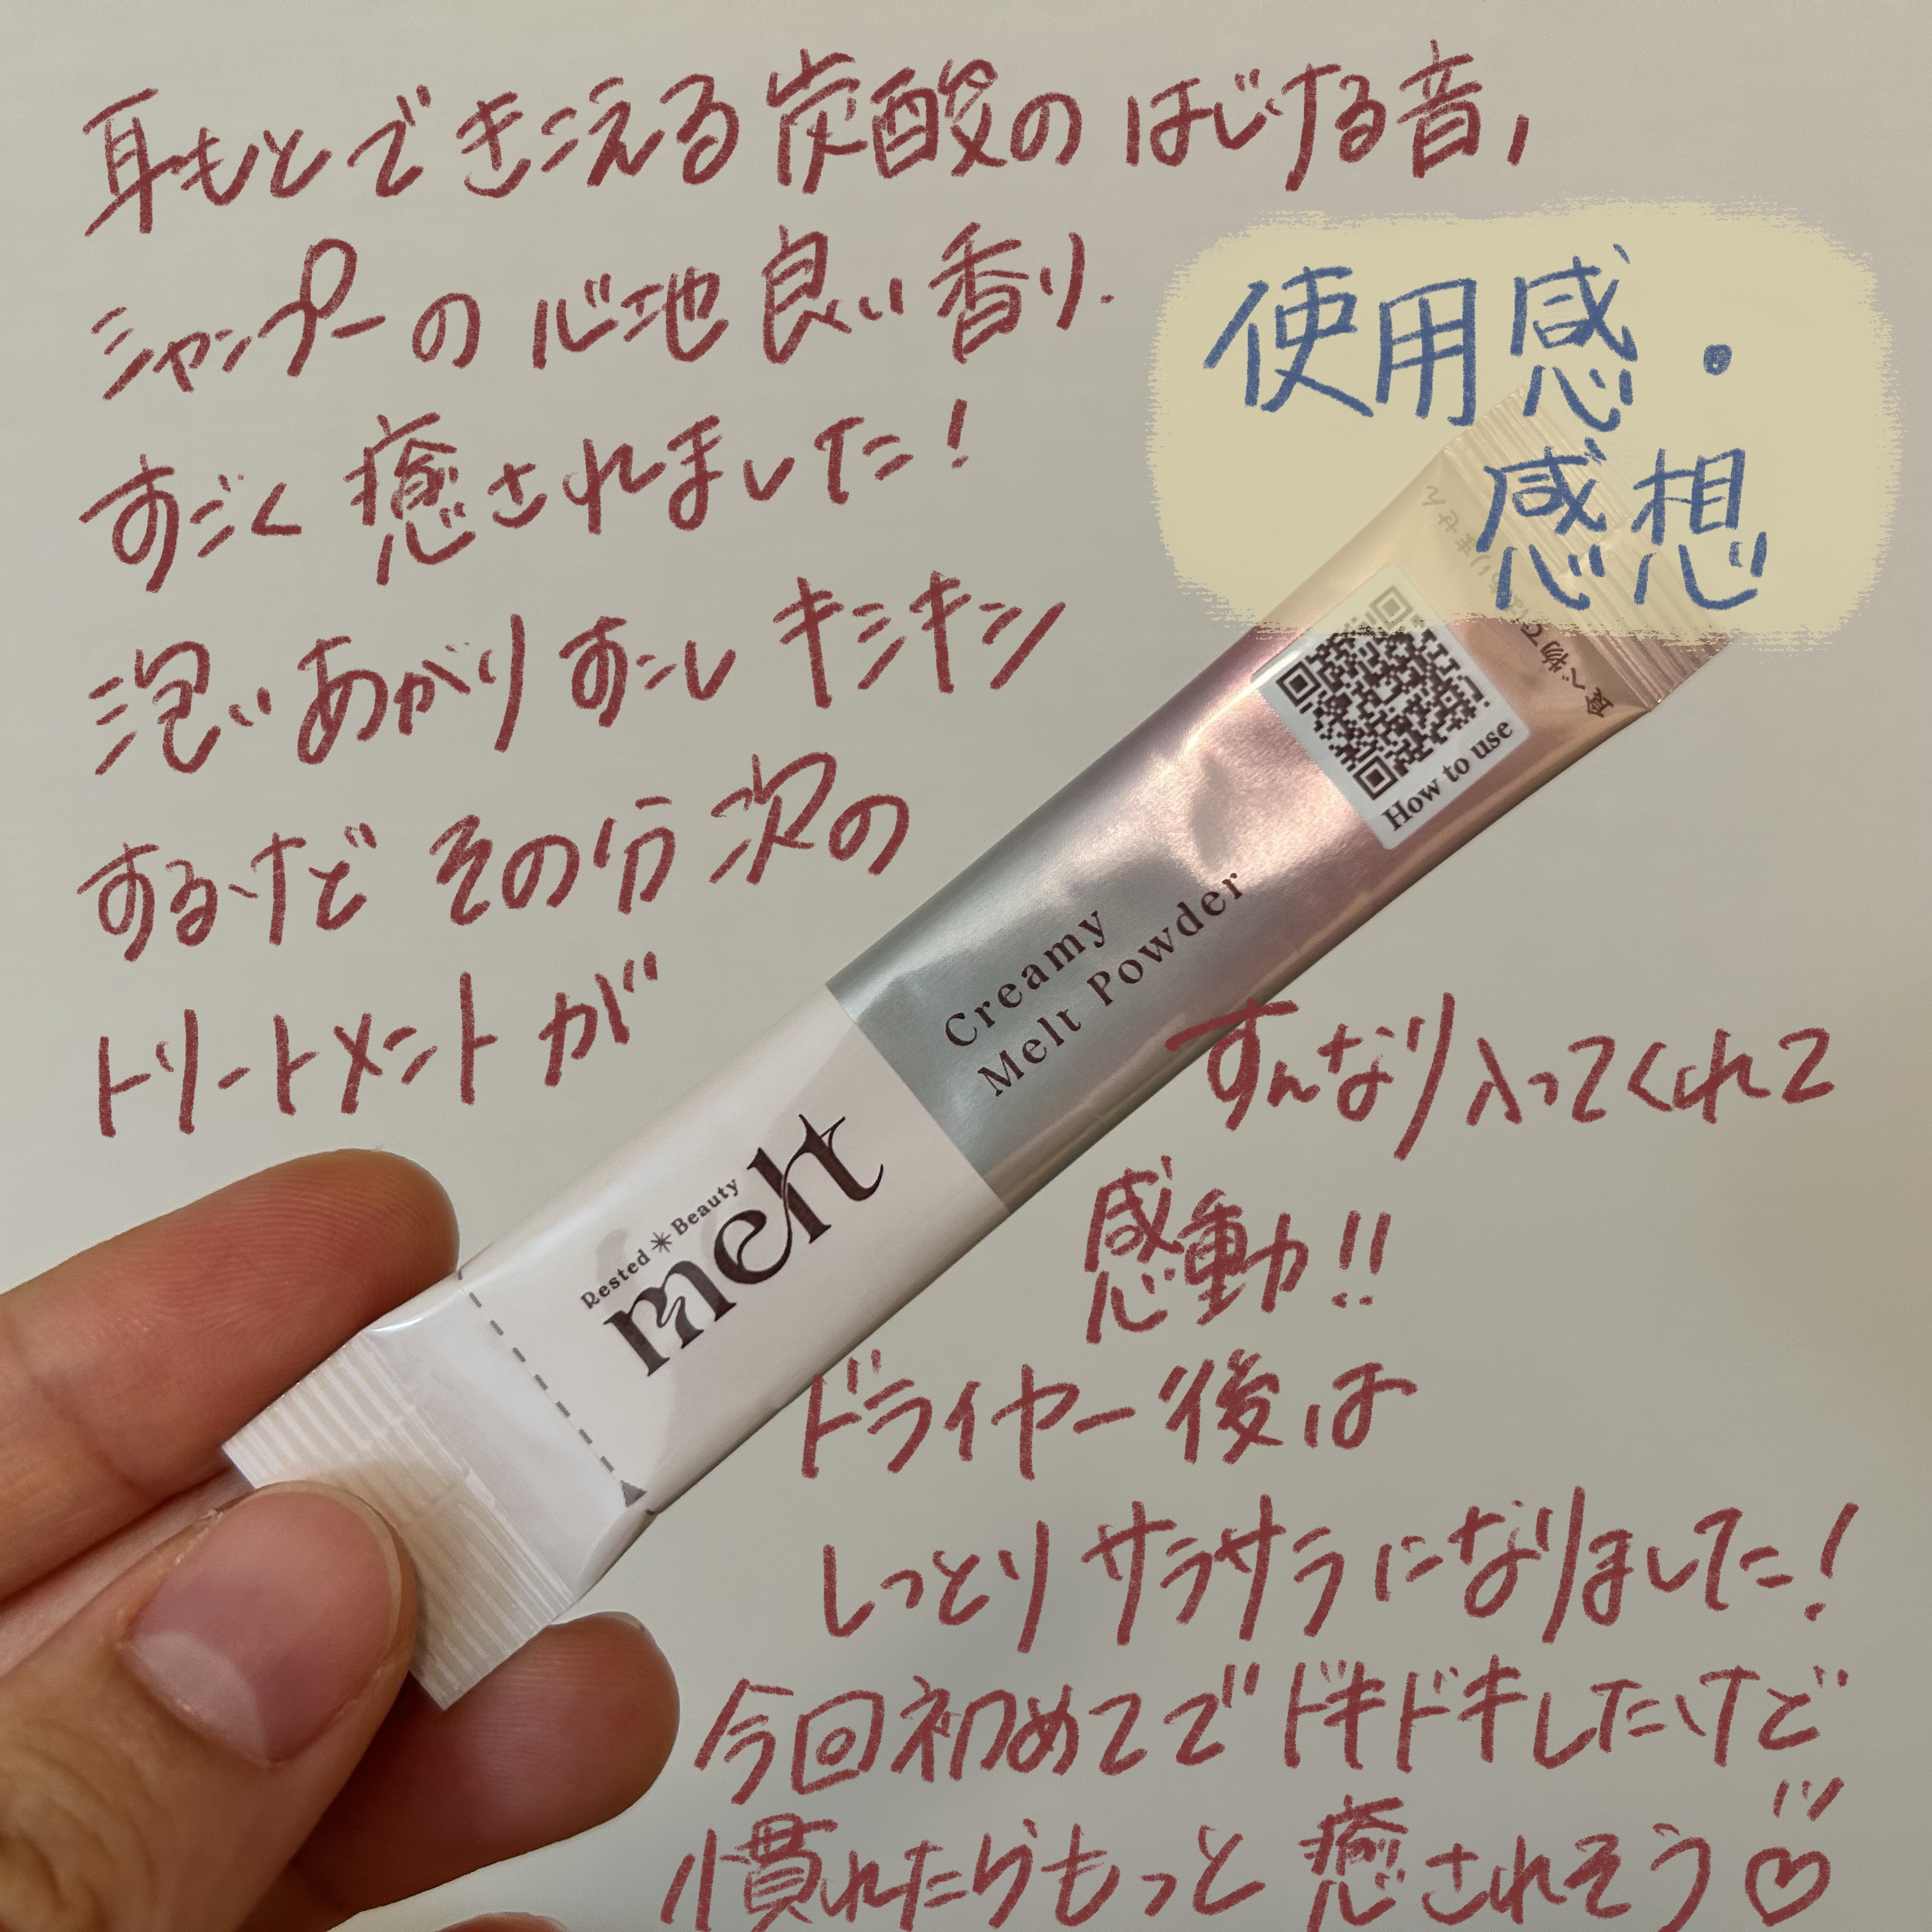 耳もとできこえる炭酸のはじける音,
シャンプーの心地良い香り.
すごく癒されました!
洗いあがりすこしキシキシ
するけどその分次の
トリートメントが
すんなり入ってくれて
感動!!
ドライヤー後は
しっとりサラサラになりました!
今回初めてでドキドキしたけど
慣れたらもっと癒されそう♡
使用感・
感想
How to use
Creamy
Melt Powder
Rested＊Beauty
melt